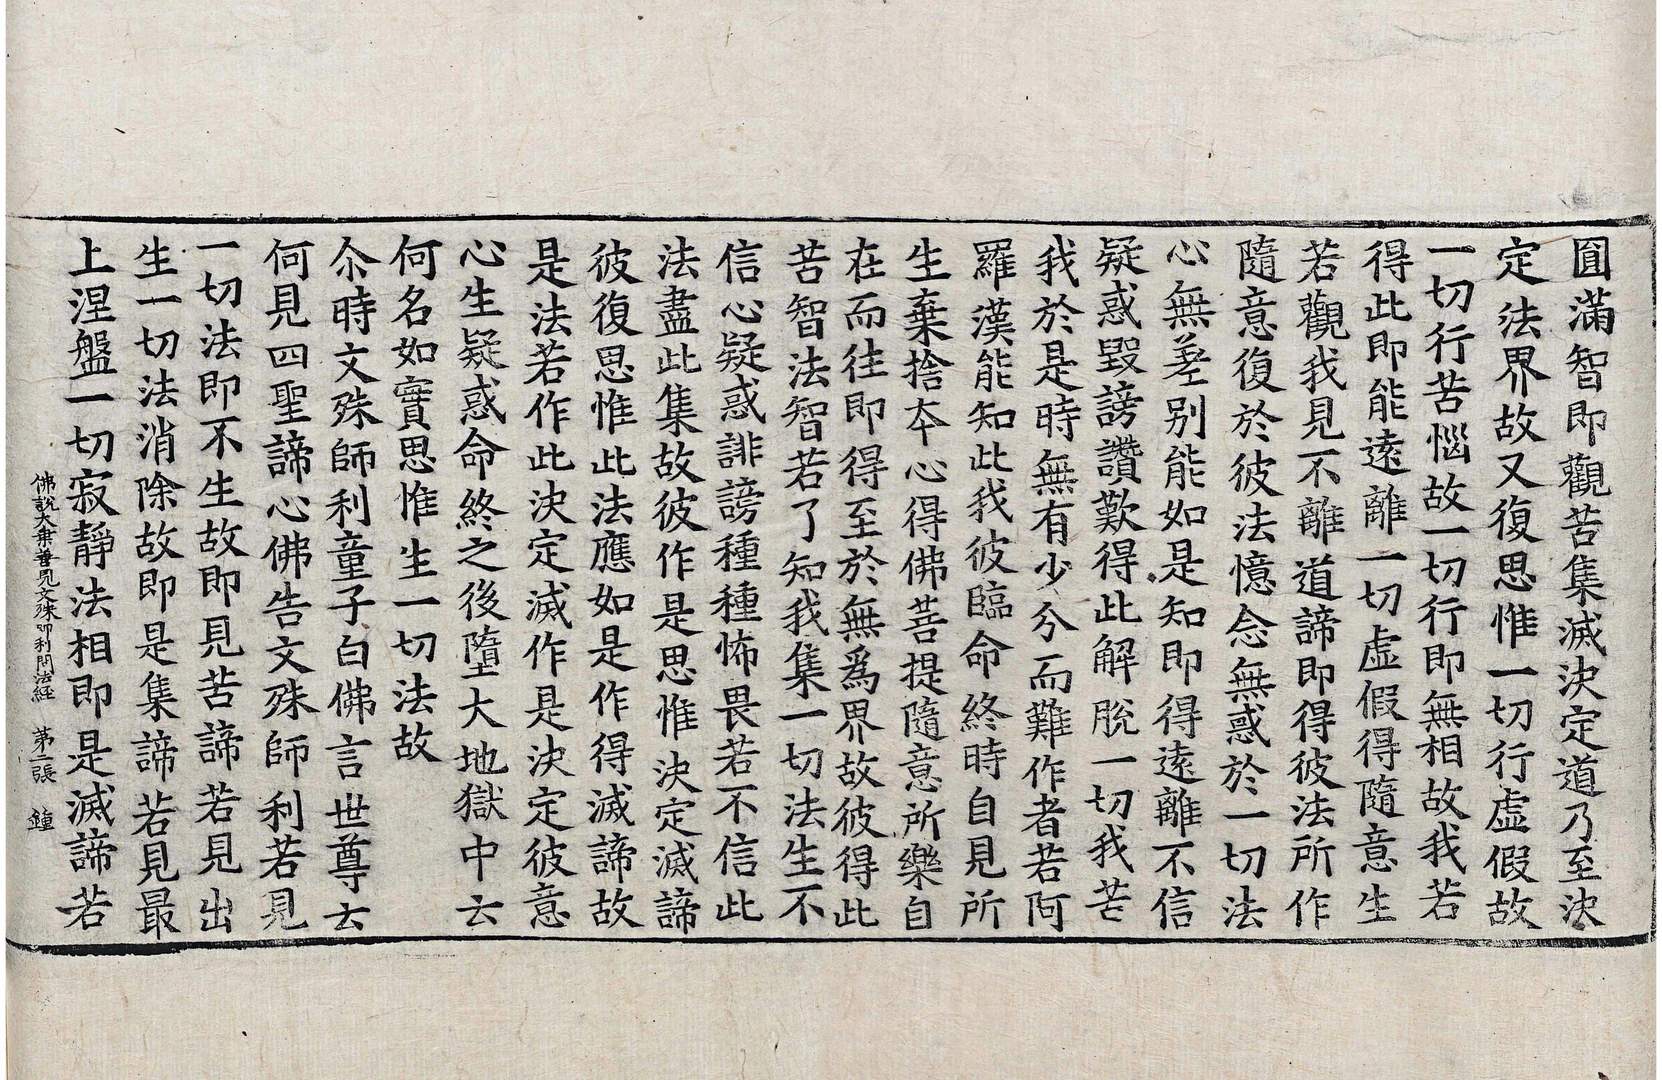 圓滿智即觀苦集滅決定道乃至決
定法界故又復思惟一切行虛假故
一切行苦惱故一切行即無相故我若
得此即能遠離一切虛假得隨意生
若觀我見不離道諦即得彼法所作
隨意復於彼法憶念無惑於一切法
心無差别能如是知即得遠離不信
疑惑毀謗讚歎得此解脫一切我苦
我於是時無有少分而難作者若阿
羅漢能知此我彼臨命終時自見所
生棄捨本心得佛菩提隨意所樂自
在而往即得至於無爲界故彼得此
苦智法智若了知我集一切法生不
信心疑惑誹謗種種怖畏若不信此
法盡此集故彼作是思惟決定滅諦
彼復思惟此法應如是作得滅諦故
是法若作此決定滅作是決定彼意
心生疑惑命終之後墮大地獄中云
何名如實思惟生一切法故
尒時文殊師利童子白佛言世尊云
何見四聖諦心佛告文殊師利若見
一切法即不生故即見苦諦若見出
生一切法消除故即是集諦若見最
上涅盤一切寂靜法相即是滅諦若
佛說大乗善見文殊師利問法経 第二張 鍾